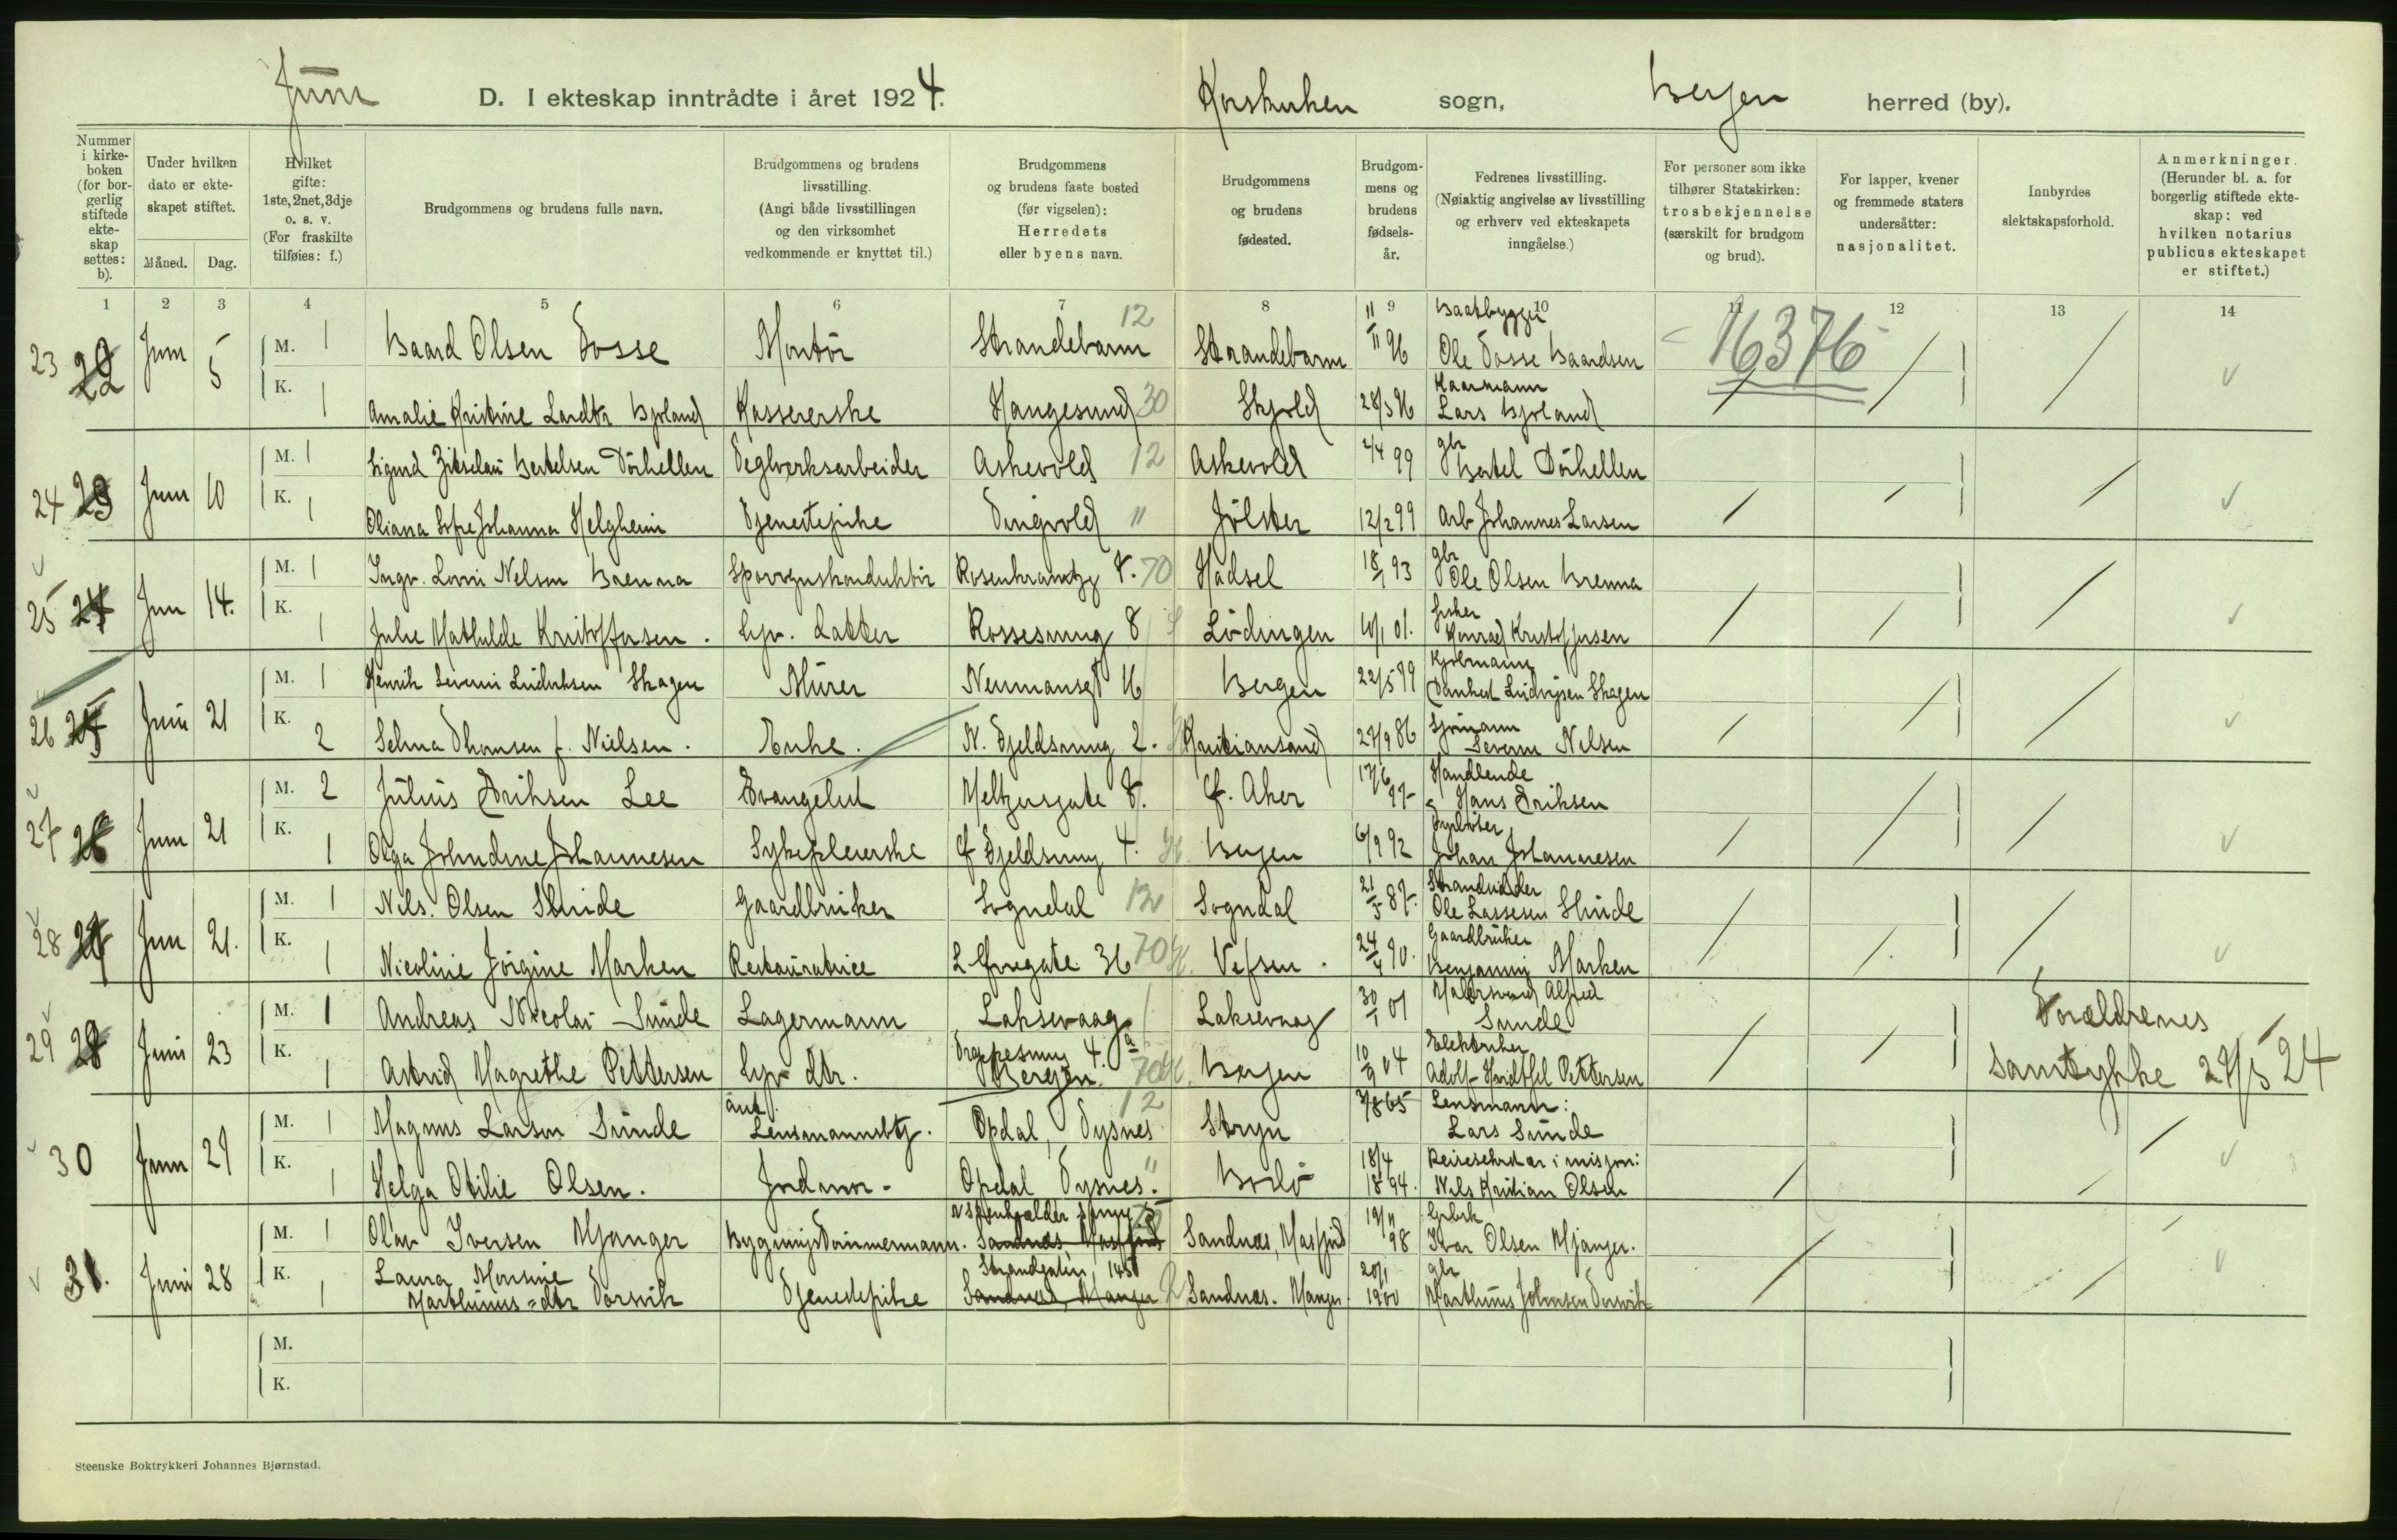 Juni D. I ekteskap inntrådte i året 1924. Korskirken sogn, Bergen herred (by).
Nummer i kirkeboken (for borgerlig stiftede ekteskap settes: b).
Under hvilken dato er ekteskapet stiftet.
Måned. Dag.
Hvilket gifte: 1ste, 2net, 3dje o. s. v. (For fraskilte tilføies: f.)
Brudgommens og brudens fulle navn.
Brudgommens og brudens livsstilling. (Angi både livsstillingen og den virksomhet vedkommende er knyttet til.)
Brudgommens og brudens faste bosted (før vigselen): Herredets eller byens navn.
Brudgommens og brudens fødested.
Brudgommens og brudens fødselsår.
Fedrenes livsstilling. (Nøiaktig angivelse av livsstilling og erhverv ved ekteskapets inngåelse.)
For personer som ikke tilhører Statskirken: trosbekjennelse (særskilt for brudgom og brud).
For lapper, kvener og fremmede staters undersåtter: nasjonalitet.
Innbyrdes slektskapsforhold.
Anmerkninger. (Herunder bl. a. for borgerlig stiftede ekteskap: ved hvilken notarius publicus ekteskapet er stiftet.)
1 2 3 4 5 6 7 8 9 10 11 12 13 14
23 22 Juni 5 M. 1 Baard Olsen Tosse Montör Strandebarm 12 Strandebarm 11/11 96 Baatbygger Ole Tosse Baardsen 16376
K. 1 Amalie Kristine Larsdtr Bjoland Kassererske Haugesund 30 Skjold 28/3 96 Lars Bjoland
24 23 Juni 10 M. 1 Sigurd Bertelsen Dörhellen Teglverksarbeider Askevold 12 Askevold 2/4 99 gbr Bertel Dörhellen
K. 1 Oliana Sofie Johanna Helgheim Tjenestepike Tingvold 11 Jölster 12/2 99 Arb Johannes Larsen
25 24 Juni 14. M. 1 Ingv. Nelson Brenna Sporvognskonduktör Rosenkrantzg 8. 70 Hadsel 18/1 93 gbr Ole Olsen Brenna
K. 1 Julie Mathilde Kristoffersen. Hjv. datter Rossesmug 8 Lödingen 10/1 01. Fisker Konrad Kristoffersen
26 25 Juni 21 M. 1 Henrik Severin Ludviksen Skagen Murer Neumansgt 16 Bergen 22/5 89 Danhert Ludvigsen Skagen
K. 2 Selma Thomsen f. Nielsen. Enke. N. Fjeldsmug 2. Kristiansand 27/9 86 Sjömann Severin Nelsen
27 26 Juni 21 M. 2 Julius Eriksen Lee Evangelist Meltzersgate 8. Ø. Aker 17/6 97 Handlende Hans Eriksen
K. 1 Olga Johndine Johannesen Sykepleierske Ø Fjeldsmug 4. Bergen 6/9 92 Fyrböter Johan Johannesen
28 27 Juni 21. M. 1 Nils Olsen Skinde Gaardbruker Sogndal 12 Sogndal 21/5 87. Strandsidder Ole Lassesen Skinde
K. 1 Nicoline Jörgine Marken Restauratrice L Øvregate 36 70 Vefsen. 24/4 90. Gaardbruker Benjamin Marken
29 28 Juni 23 M. 1 Andreas Nicolai Sunde Lagermann Laksevaag Laksevaag 30/1 01 Alfred Sunde Forældrenes
K. 1 Astrid Magrethe Pettersen Hjv dtr. Bergen. 70 Bergen 10/9 04 Elektriker Adolf Pettersen samtykke 27/5 24
30 Juni 27 M. 1 Magnus Larsen Sunde Lensmannsbtj. Opdal, Tysnes 12 Stryn 7/8 65 Lensmann: Lars Sunde
K. 1 Helga Otilie Olsen. Jordmor. Opdal Tysnes. " Bodö 18/4 1894. Reisesekretær i misjon: Nils Kristian Olsen
31. Juni 28 M. 1 Olav Iversen Mjanger Bygningstömmermann. Sandnes, Masfjord Sandnes, Masfjord 19/11 98 Gbrk Ivar Olsen Mjanger.
K. 1 Laura Monsine Marthinus-dtr Dorsvik Tjenestepike Strandgaten, 145 Sandnes, Manger Sandnes. Manger 20/1 1900 gbr Marthinus Johnsen Dorsvik
M.
K.
Steenske Boktrykkeri Johannes Bjørnstad.